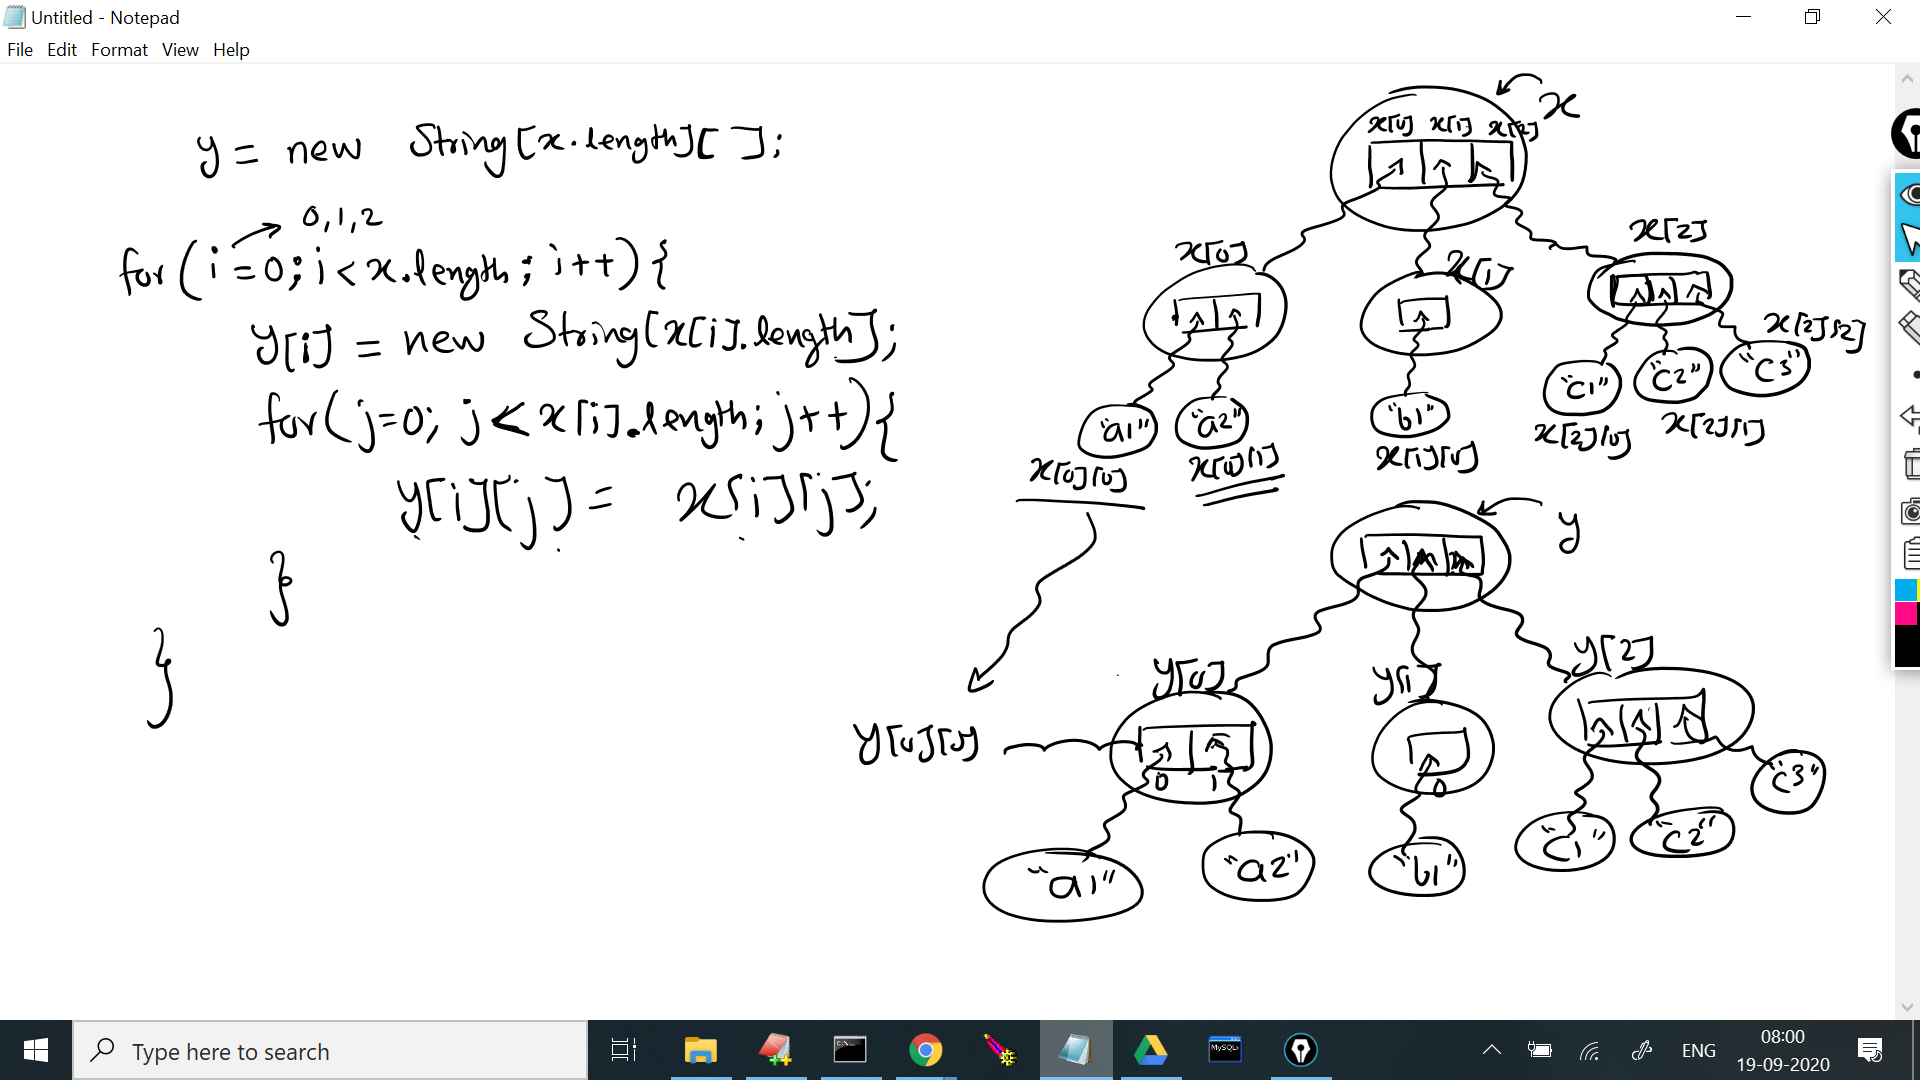 Untitled - Notepad
File Edit Format View Help
y = new String[x.length][ ];
0,1,2
for(i=0; i<x.length; i++){
y[i] = new String[x[i].length];
for(j=0; j<x[i].length; j++){
y[i][j] = x[i][j];
}
}
x
x[0] x[1] x[2]
x[0]
x[1]
x[2]
"a1"
"a2"
"b1"
"c1"
"c2"
"c3"
x[0][0]
x[0][1]
x[1][0]
x[2][0]
x[2][1]
x[2][2]
y
y[0]
y[1]
y[2]
y[0][0]
0 1
0
"a1"
"a2"
"b1"
"c1"
"c2"
"c3"
Type here to search
MySQL
ENG
08:00
19-09-2020